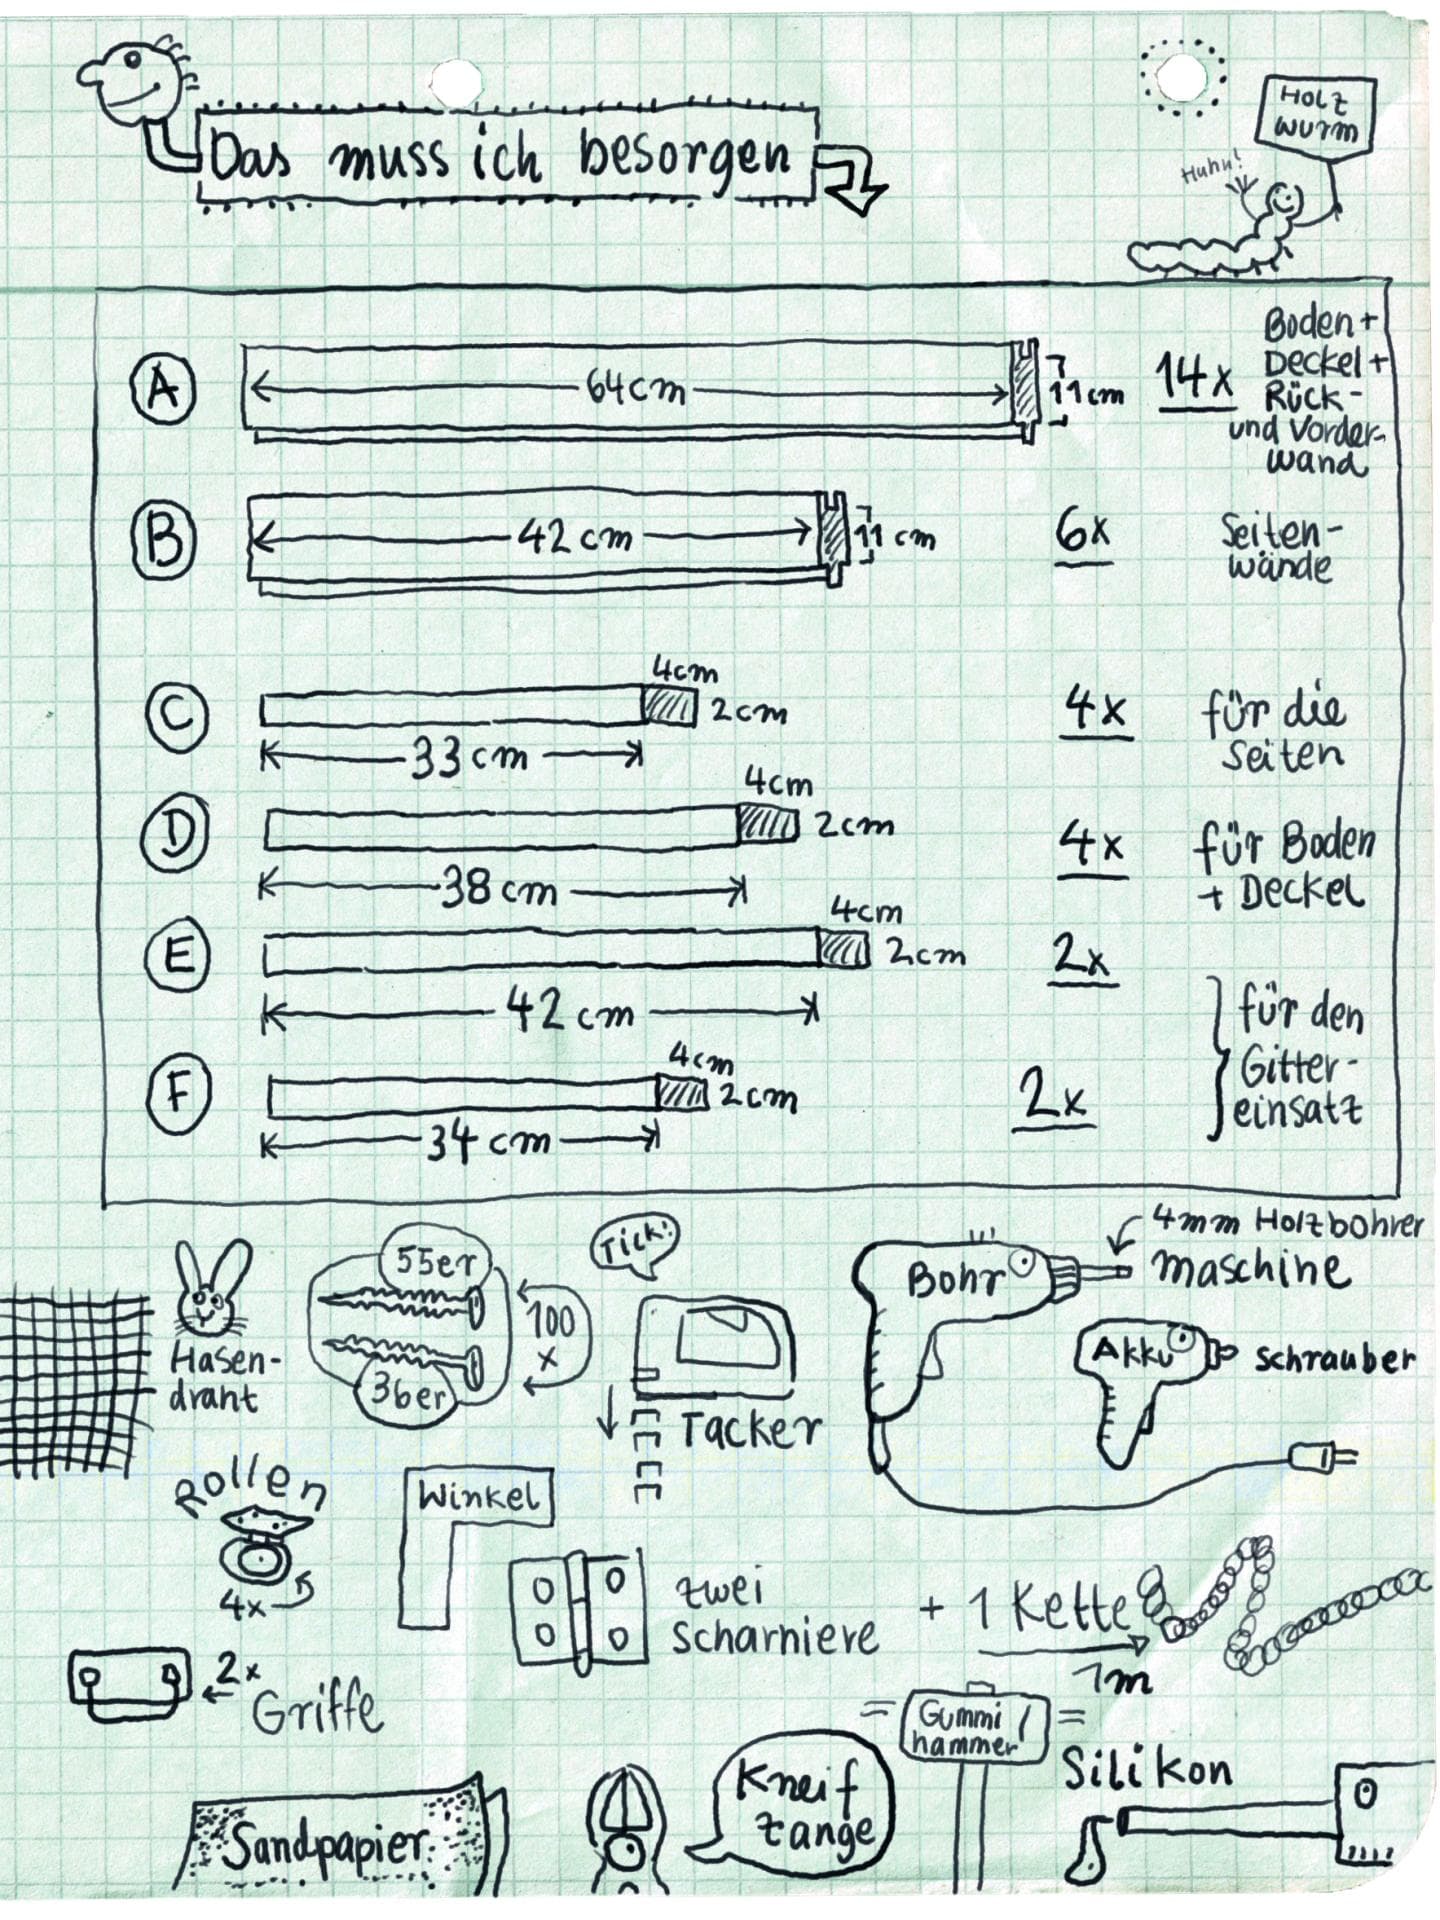 Das muss ich besorgen
HOLZ
WURM
Huhu!
A
64cm
11cm
14x
Boden+
Deckel+
Rück-
und Vorder-
wand
B
42 cm
11 cm
6x
Seiten-
wände
C
4cm
2cm
33 cm
4x
für die
Seiten
D
4cm
2cm
38 cm
4x
für Boden
+ Deckel
E
4cm
2cm
42 cm
2x
F
4cm
2cm
34 cm
2x
für den
Gitter-
einsatz
Hasen-
draht
55er
36er
100
x
Tick!
Tacker
4mm Holzbohrer
Bohr maschine
Akku schrauber
Rollen
4x
Winkel
zwei
Scharniere
+ 1 Kette
1m
2x
Griffe
Gummi
hammer
Silikon
Sandpapier
Kneif
zange